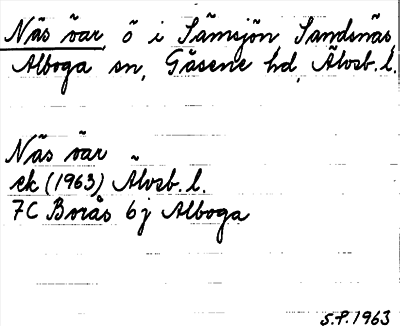 Näs öar, ö i Sämsjön, Sandsnäs,
Alboga sn, Gäsene hd, Älvsb. l.
Näs öar
ek (1963) Älvsb. l.
7C Borås 6j Alboga
S.P. 1963